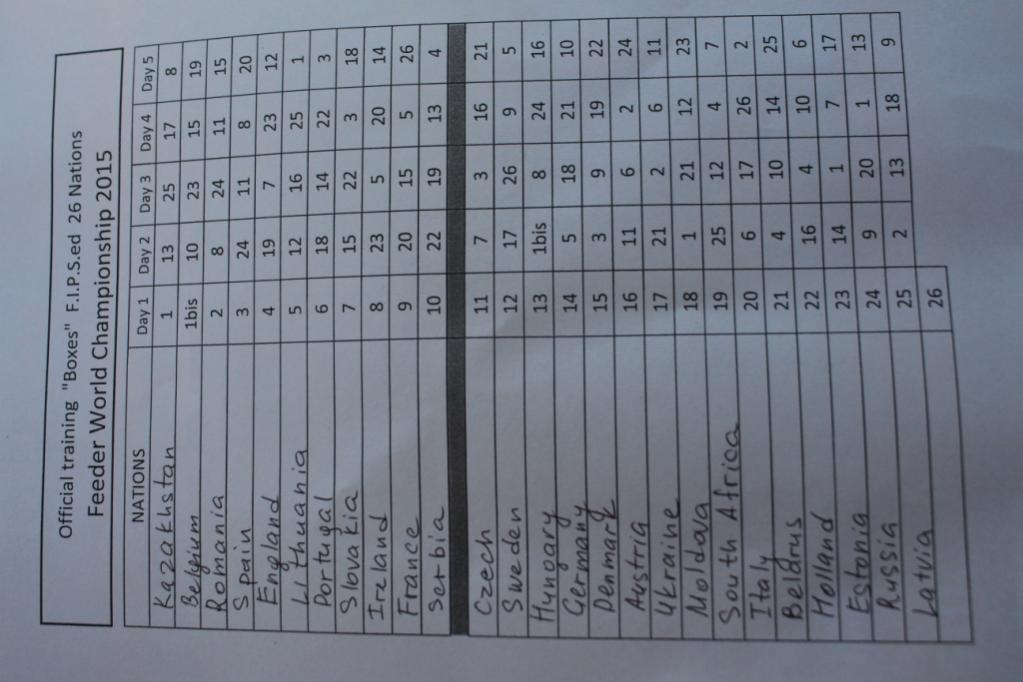 Official training "Boxes" F.I.P.S.ed 26 Nations
Feeder World Championship 2015
NATIONS Day 1 Day 2 Day 3 Day 4 Day 5
Kazakhstan 1 13 25 17 8
Belgium 1bis 10 23 15 19
Romania 2 8 24 11 15
Spain 3 24 11 8 20
England 4 19 7 23 12
Lithuania 5 12 16 25 1
Portugal 6 18 14 22 3
Slovakia 7 15 22 3 18
Ireland 8 23 5 20 14
France 9 20 15 5 26
Serbia 10 22 19 13 4
Czech 11 7 3 16 21
Sweden 12 17 26 9 5
Hungary 13 1bis 8 24 16
Germany 14 5 18 21 10
Denmark 15 3 9 19 22
Austria 16 11 6 2 24
Ukraine 17 21 2 6 11
Moldava 18 1 21 12 23
South Africa 19 25 12 4 7
Italy 20 6 17 26 2
Belarus 21 4 10 14 25
Holland 22 16 4 10 6
Estonia 23 14 1 7 17
Russia 24 9 20 1 13
Latvia 25 2 13 18 9
26